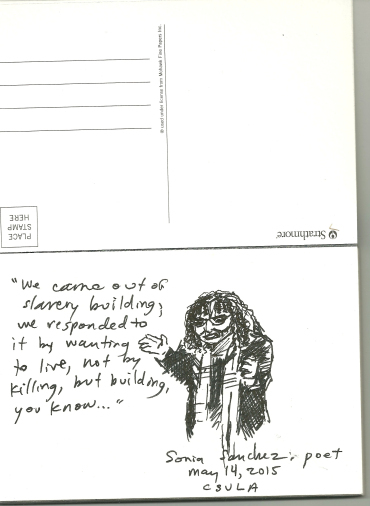 ® used under license from Mohawk Fine Papers Inc.
PLACE
STAMP
HERE
Strathmore
"We came out of
slavery building;
we responded to
it by wanting
to live, not by
killing, but building,
you know..."
Sonia Sanchez: poet
may 14, 2015
CSULA